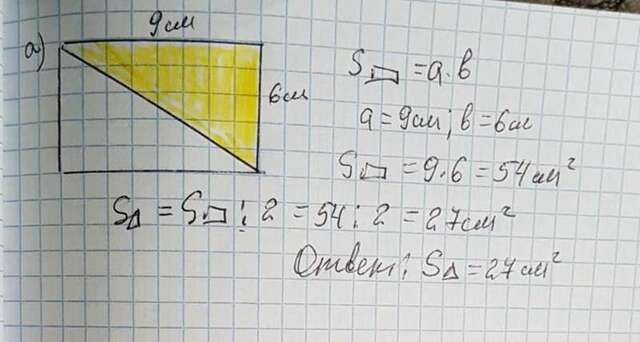 9см
а)
6см
S▭ = a·b
a = 9см; b = 6см
S▭ = 9·6 = 54см²
S△ = S▭ : 2 = 54 : 2 = 27см²
Ответ: S△ = 27см²